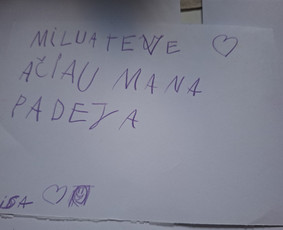 MILUATEVE
AČIAU MANA
PADEJA